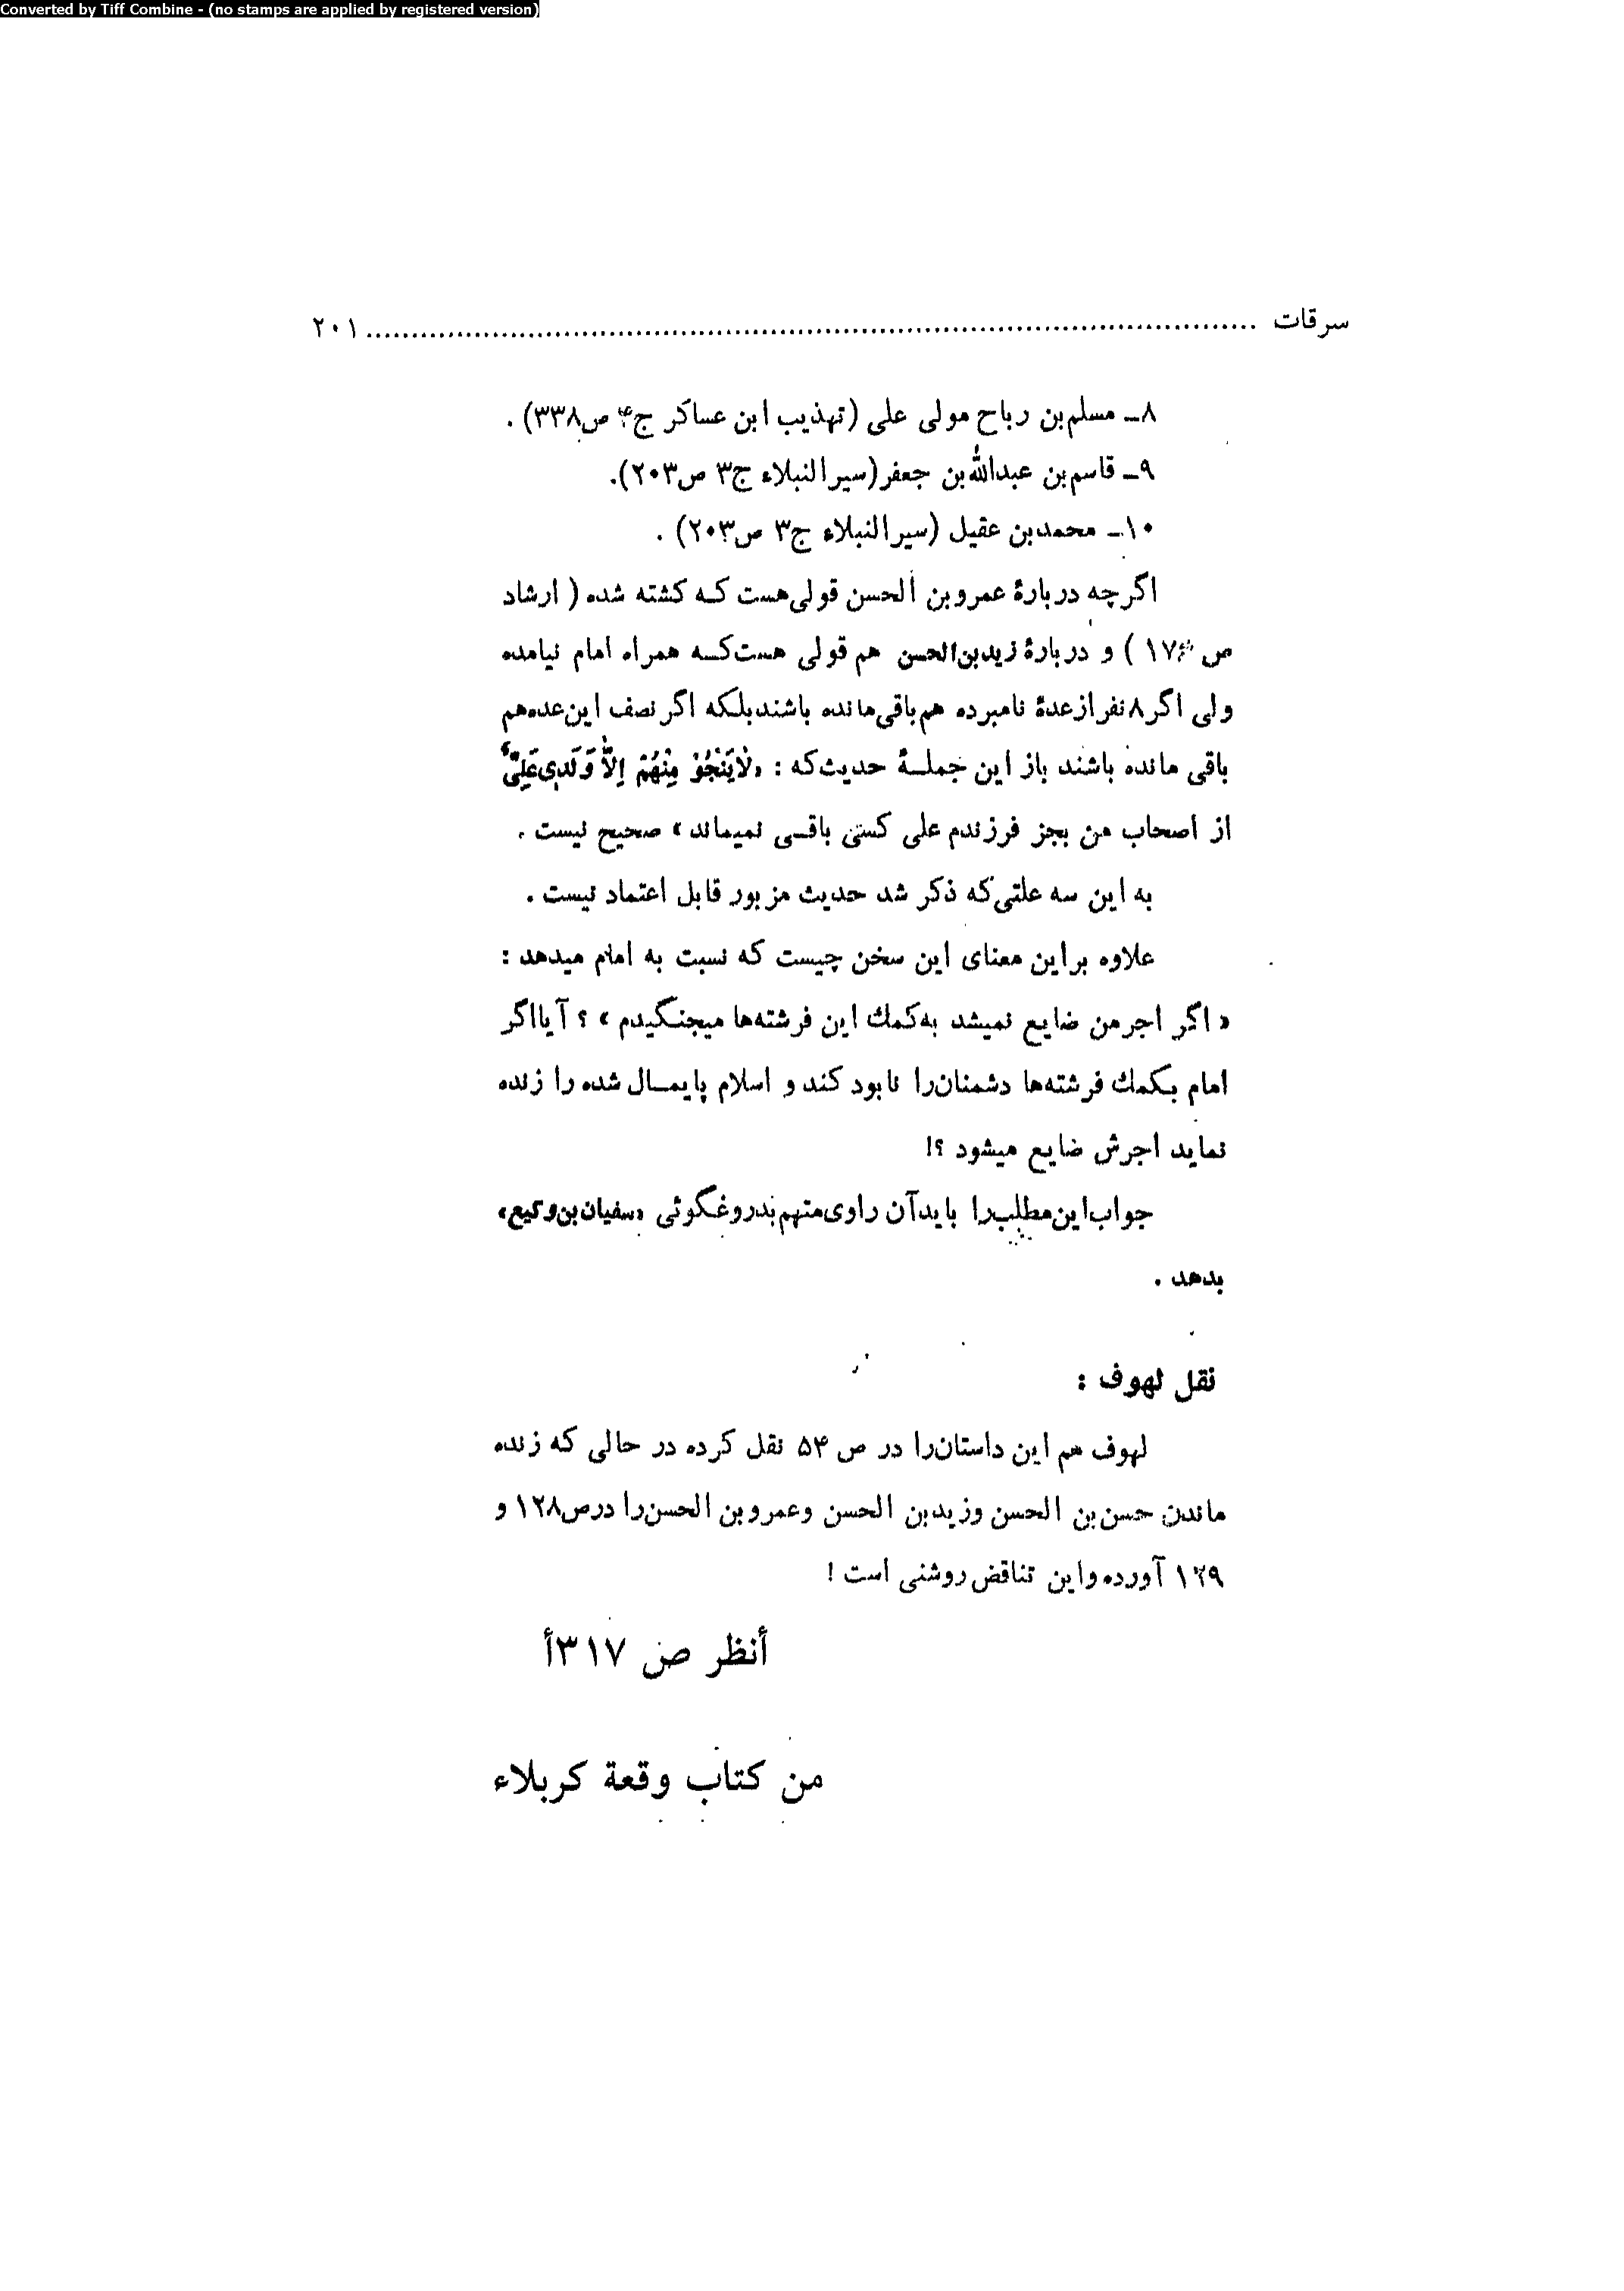 Converted by Tiff Combine - (no stamps are applied by registered version)
سرقات .......... ۲۰۱
۸ـ مسلم‌بن رباح مولی علی (تهذیب ابن عساکر ج۴ ص۳۳۸) .
۹ـ قاسم‌بن عبدالله‌بن جعفر(سیرالنبلاء ج۳ ص۲۰۳).
۱۰ـ محمدبن عقیل (سیرالنبلاء ج۳ ص۲۰۳) .
اگرچه دربارۀ عمروبن الحسن قولی‌هست کـه کشته شده ( ارشاد
ص۱۷۶ ) و دربارۀ زیدبن‌الحسن هم قولی هست‌کـه همراه امام نیامده
ولی اگر۸نفرازعدۀ نامبرده هم‌باقی‌مانده باشندبلکه اگرنصف این‌عده‌هم
باقی مانده باشند باز این جملـۀ حدیث‌که : «لٰایَنْجُوْ مِنْهُمْ اِلّٰا وَلَدِی‌عَلِیٌّ
از اصحاب من بجز فرزندم علی کسی باقـی نمیماند» صحیح نیست .
به این سه علتی‌که ذکر شد حدیث مزبور قابل اعتماد نیست .
علاوه براین معنای این سخن چیست که نسبت به امام میدهد :
«اگر اجرمن ضایع نمیشد به‌کمك این فرشته‌ها میجنگیدم» ؟ آیااگر
امام بکمك فرشته‌ها دشمنان‌را نابود کند و اسلام پایمـال شده را زنده
نماید اجرش ضایع میشود ؟!
جواب‌این‌مطلب‌را بایدآن راوی‌متهم‌بدروغگوئی «سفیان‌بن‌وکیع»
بدهد .
نقل لهوف :
لهوف هم این داستان‌را در ص ۵۴ نقل کرده در حالی که زنده
ماندن حسن‌بن الحسن وزیدبن الحسن وعمروبن الحسن‌را درص۱۲۸ و
۱۲۹ آورده‌واین تناقض‌روشنی است !
أنظر ص ۳۱۷أ
من کتاب وقعة کربلاء